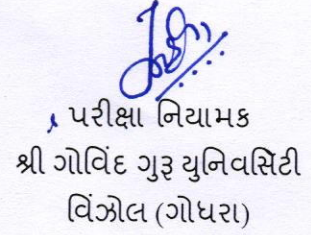 પરીક્ષા નિયામક
શ્રી ગોવિંદ ગુરૂ યુનિવર્સિટી
વિંઝોલ (ગોધરા)